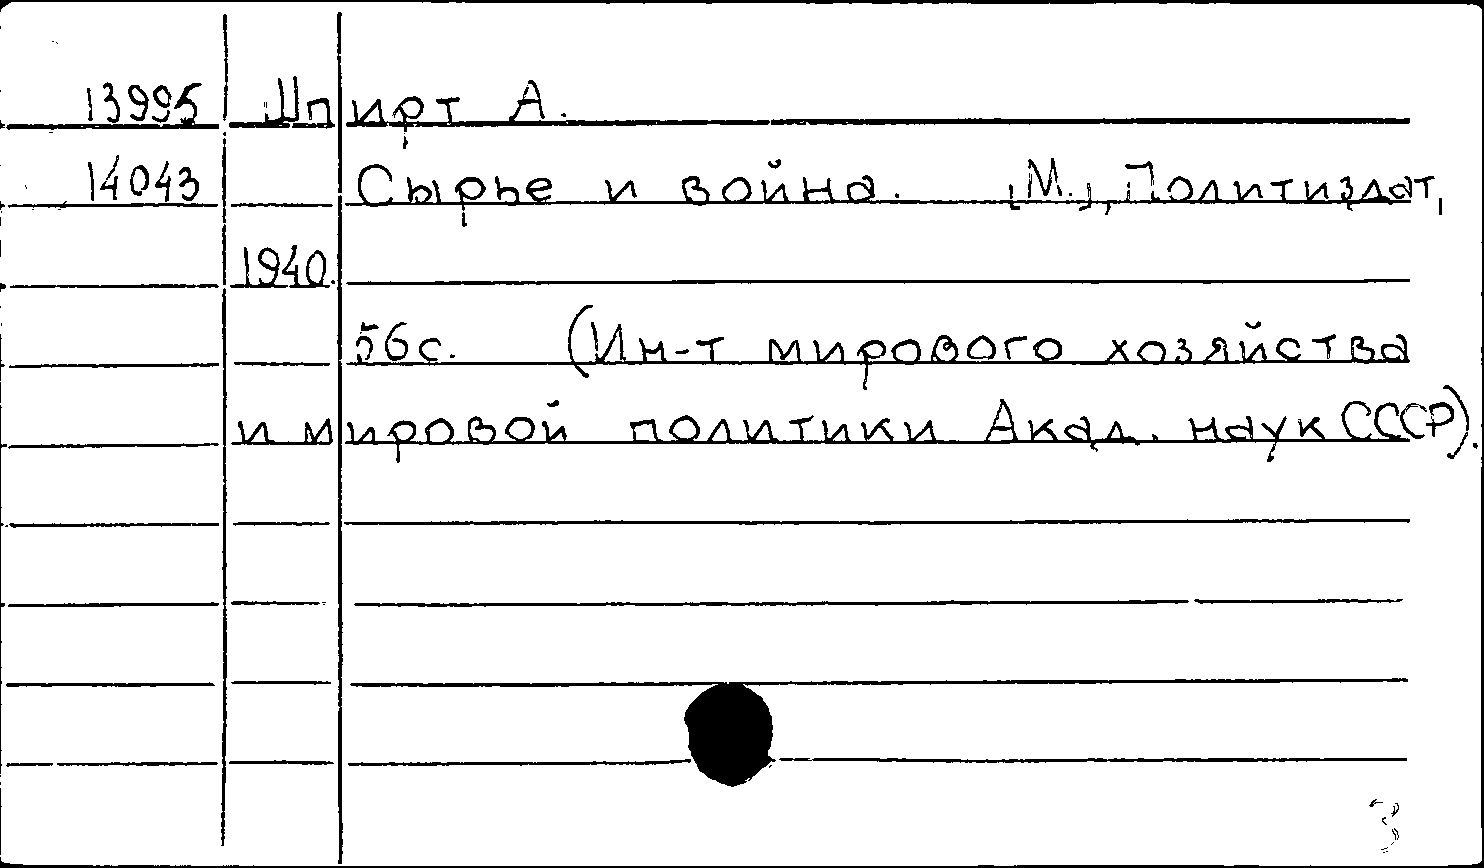 13995 Шпирт А.
14043 Сырье и война. [М.], Политиздат,
1940.
56с. (Ин-т мирового хозяйства
и мировой политики Акад. наук СССР).
3